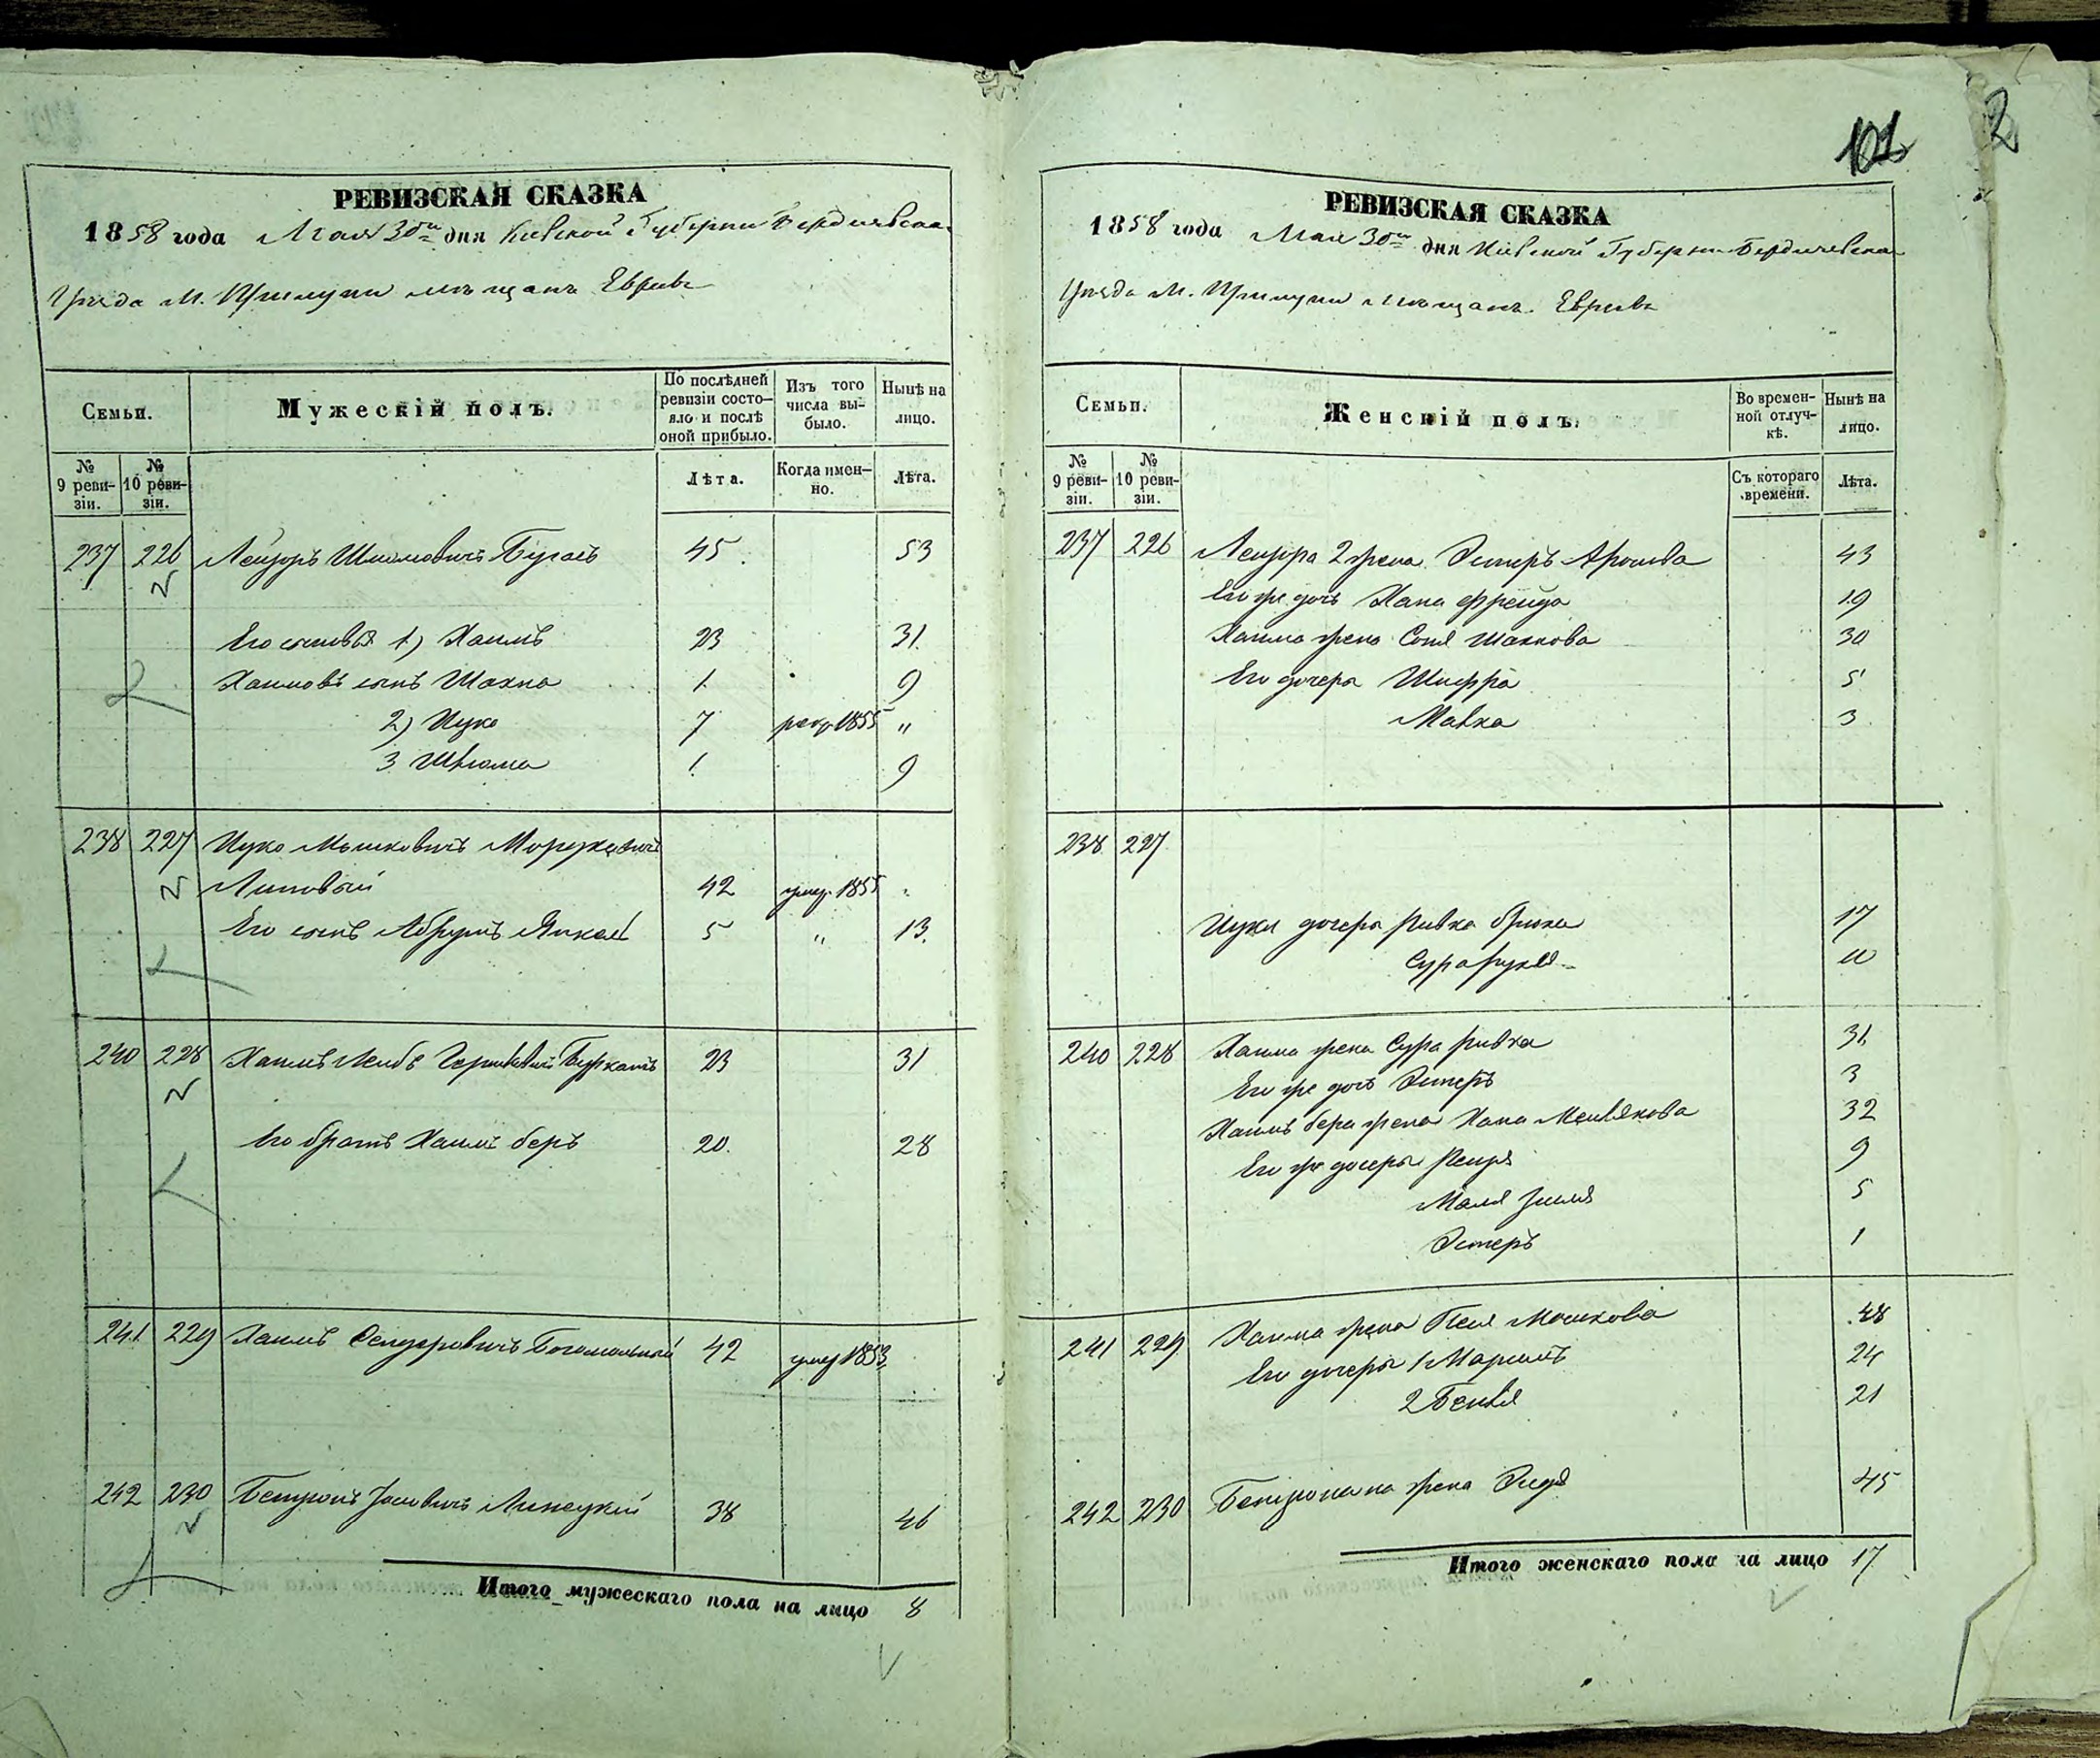 101
2
РЕВИЗСКАЯ СКАЗКА
1858 года Мая 30го дня Кіевской Губерніи Бердичевскаго
Уѣзда М. Прилуки мѣщанъ Евреевъ
Семьи.
Мужескій полъ.
По послѣдней ревизіи состояло и послѣ оной прибыло.
Изъ того числа выбыло.
Нынѣ на лицо.
№ 9 ревизіи.
№ 10 ревизіи.
Лѣта.
Когда именно.
Лѣта.
237 226 Лейзоръ Шмомовичъ Бугасъ 45 53
Его сыновья 1) Хаимъ 23 31
Хаимовъ сынъ Шахна 1 9
2) Ицко 7 рекр 1855 "
3 Шлюма 1 9
238 227 Ицко Мошковичъ
Липовый 42 умер. 1855
Его сынъ Абрумъ Янкель 5 " 13
240 228 Хаимъ Лейбъ Гершковичъ 23 31
Его братъ Хаимъ беръ 20 28
241 229 Хаимъ Сендеровичъ Богомольный 42 умер 1853
242 230 Бенціонъ Іосіовичъ Липецкій 38 46
Итого мужескаго пола на лицо 8
РЕВИЗСКАЯ СКАЗКА
1858 года Мая 30го дня Кіевской Губерніи Бердичевскаго
Уѣзда М. Прилуки мѣщанъ Евреевъ
Семьи.
Женскій полъ.
Во временной отлучкѣ.
Нынѣ на лицо.
№ 9 ревизіи.
№ 10 ревизіи.
Съ котораго времени.
Лѣта.
237 226 Лейзора 2 жена Эстеръ Аронова 43
Его же дочь Хана Фрейда 19
Хаима жена Соня Шахнова 30
Его дочери Шифра 5
Малка 3
238 227
Ицки дочери Ривка 17
Сура 11
240 228 Хаима жена Сура Ривка 31
Его же дочь Эстеръ 3
Хаимъ бера жена Хана 32
Его же дочери Рейзя 9
Маля 5
Эстеръ 1
241 229 Хаима жена Песя Мошкова 48
Его дочери 1 Маріимъ 24
2 21
242 230 Бенціона жена 45
Итого женскаго пола на лицо 17